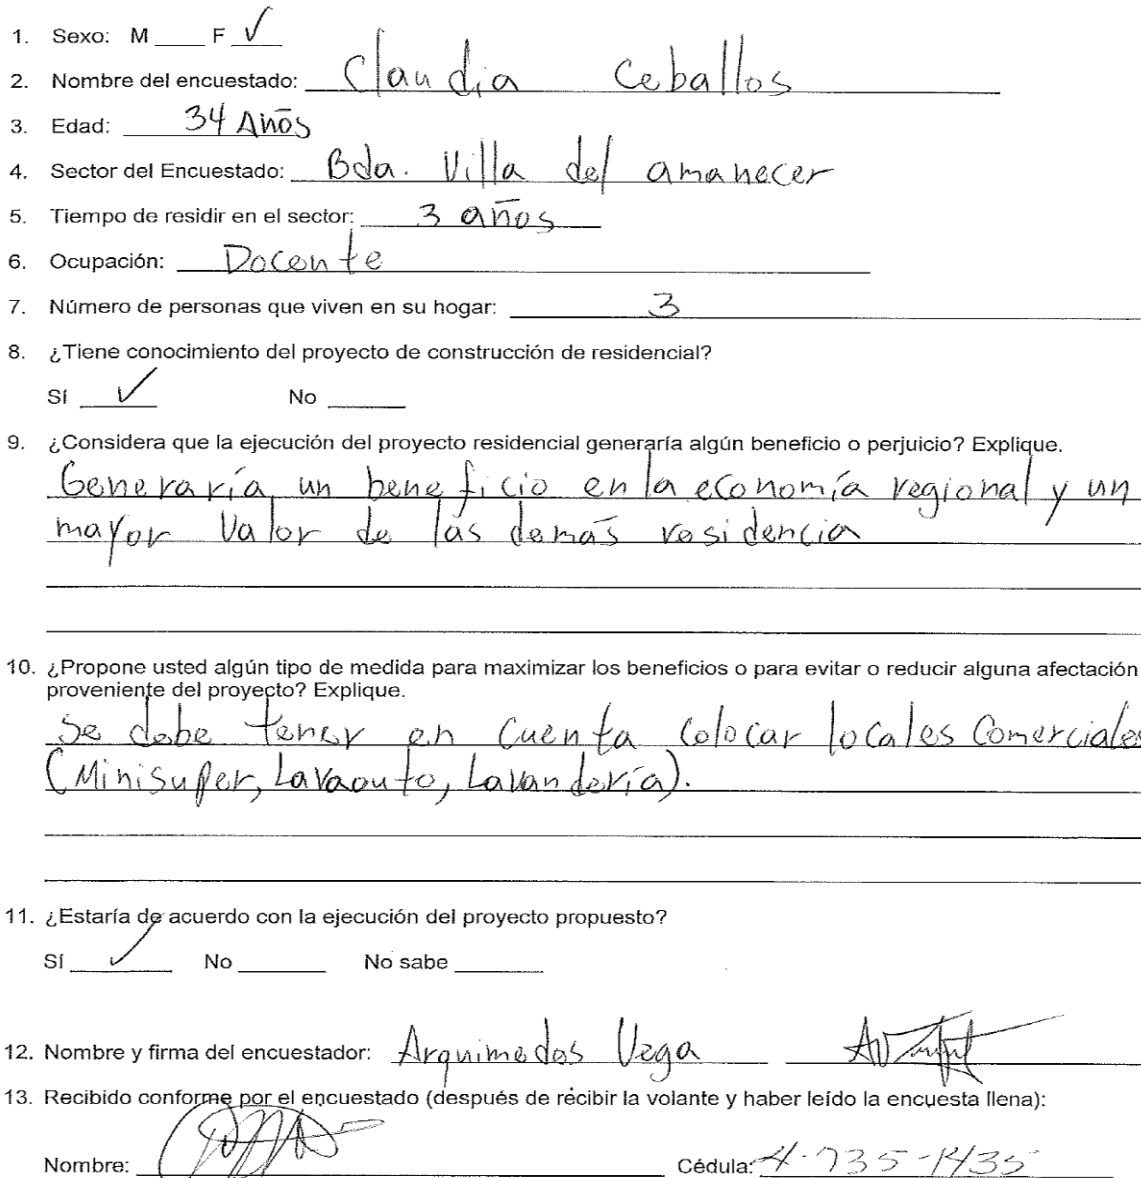 1. Sexo: M ____ F ✓
2. Nombre del encuestado: Claudia Ceballos
3. Edad: 34 Años
4. Sector del Encuestado: Bda. Villa del amanecer
5. Tiempo de residir en el sector: 3 años
6. Ocupación: Docente
7. Número de personas que viven en su hogar: 3
8. ¿Tiene conocimiento del proyecto de construcción de residencial?
Sí ✓ No ____
9. ¿Considera que la ejecución del proyecto residencial generaría algún beneficio o perjuicio? Explique.
Generaría un beneficio en la economía regional y un
mayor valor de las demás residencia
10. ¿Propone usted algún tipo de medida para maximizar los beneficios o para evitar o reducir alguna afectación
proveniente del proyecto? Explique.
Se debe tener en cuenta colocar locales Comerciales
(Minisuper, Lavaauto, Lavandería).
11. ¿Estaría de acuerdo con la ejecución del proyecto propuesto?
Sí ✓ No ____ No sabe ____
12. Nombre y firma del encuestador: Arquimedes Vega
13. Recibido conforme por el encuestado (después de recibir la volante y haber leído la encuesta llena):
Nombre: ____ Cédula: 4-735-1435